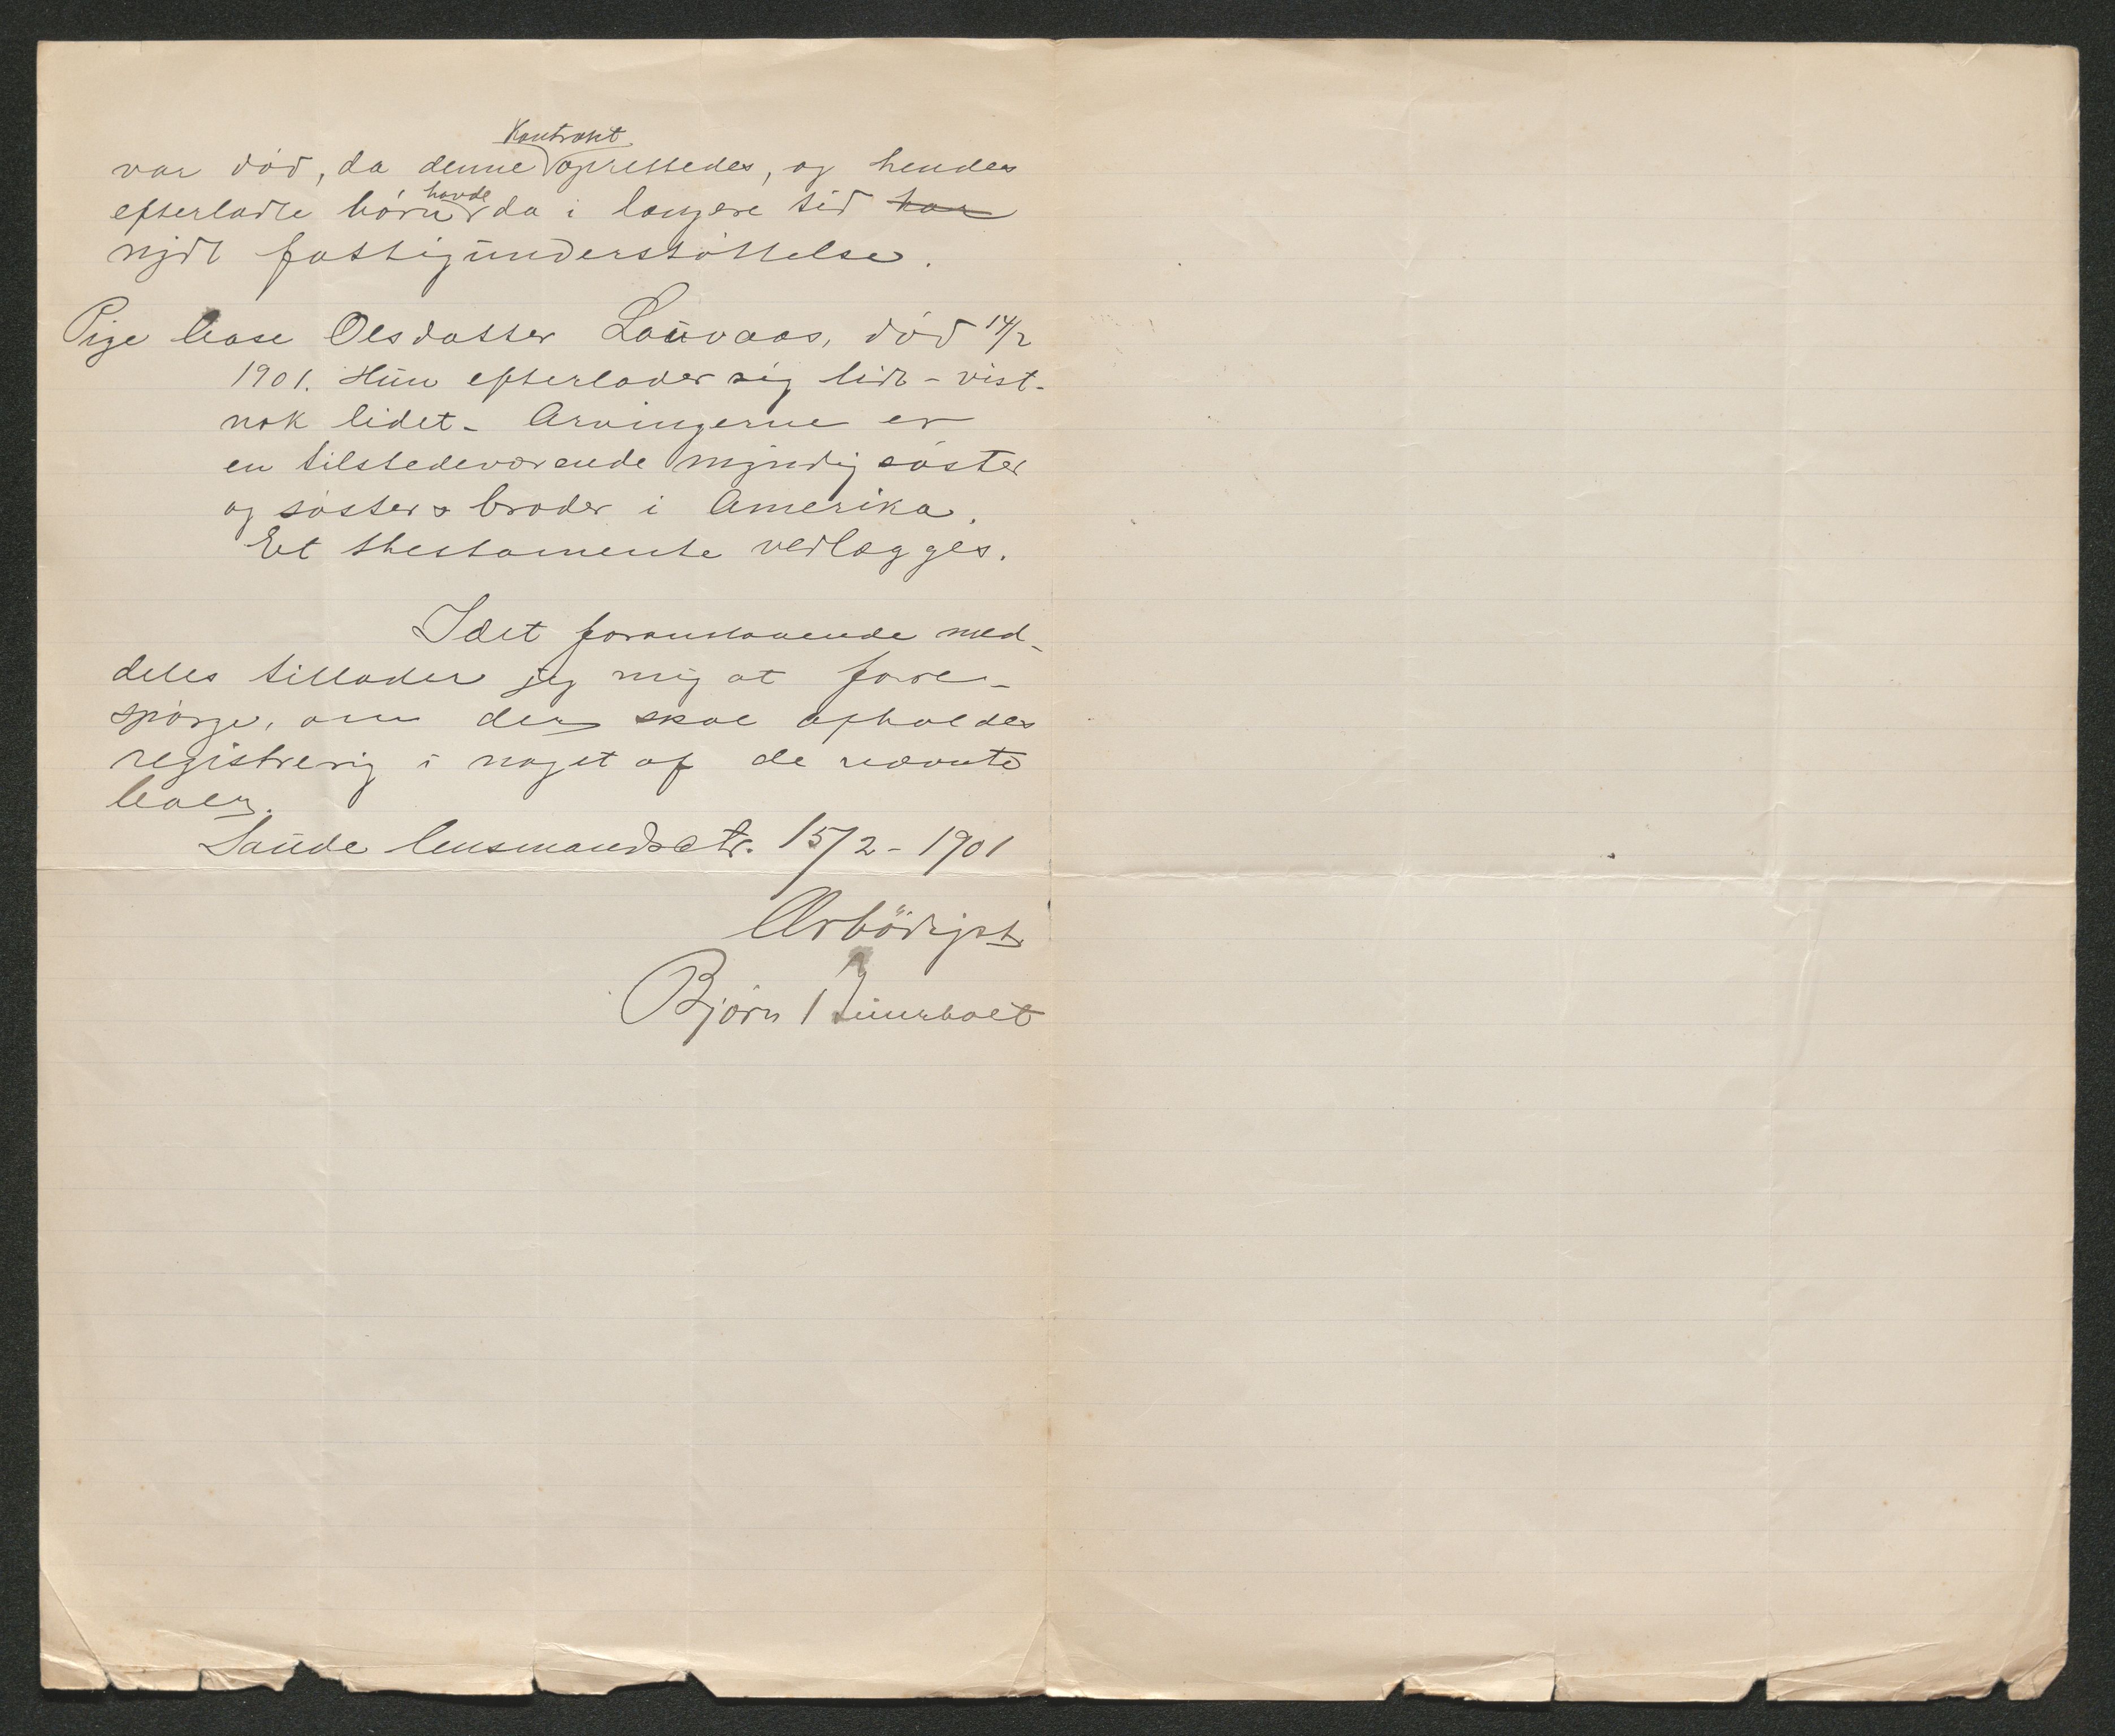 Kontrakt
var död, da denne oprettedes, og hendes
havde
efterladte börn da i længere tid har
nydt fattigunderstöttelse.
Pige Aase Olsdatter Lauvaas, död 14/2
1901. Hun efterlader sig lidt - vist-
nok lidet - Arvingerne er
en tilstedeværende myndig söster
og söster & broder i Amerika.
Et thestamente vedlægges.
Idet foranstaaende med-
deles tillader jeg mig at fore-
spörge, om der skal afholdes
registrering i noget af de nævnte
boer.
Saude lensmandsetr. 15/2 - 1901
Ærbödigst
Björn